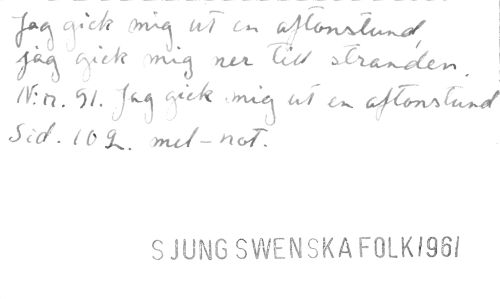 Jag gick mig ut en aftonstund,
jag gick mig ner till stranden.
N:r. 91. Jag gick mig ut en aftonstund
Sid. 102. mel-not.
SJUNG SWENSKA FOLK 1961